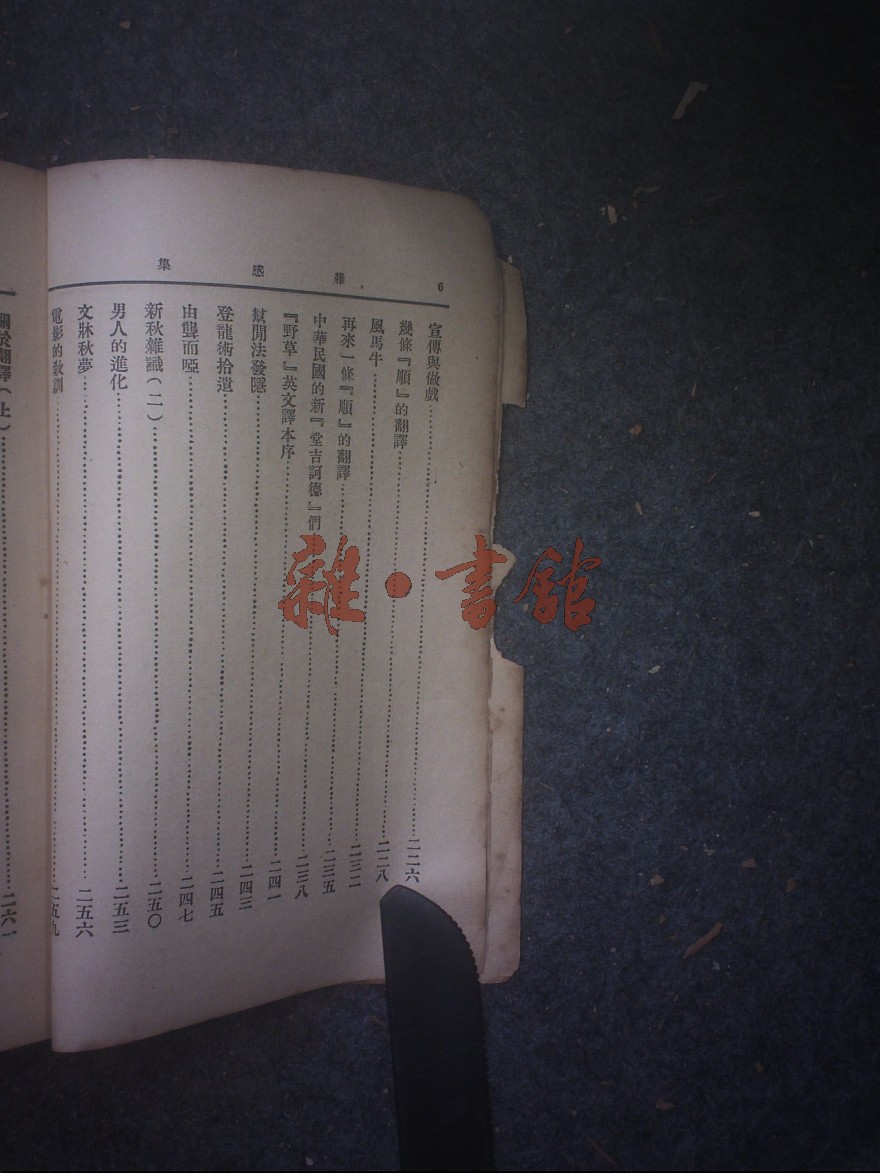 6
雜感集
宣傳與做戲……二二六
幾條『順』的翻譯……二二八
風馬牛……二三二
再來一條『順』的翻譯……二三五
中華民國的新『堂吉訶德』們……二三八
『野草』英文譯本序……二四一
幫閒法發隱……二四三
登龍術拾遺……二四五
由聾而啞……二四七
新秋雜識(二)……二五〇
男人的進化……二五三
文牀秋夢……二五六
電影的教訓……二五九
關於翻譯(上)……二六一
雜·書館